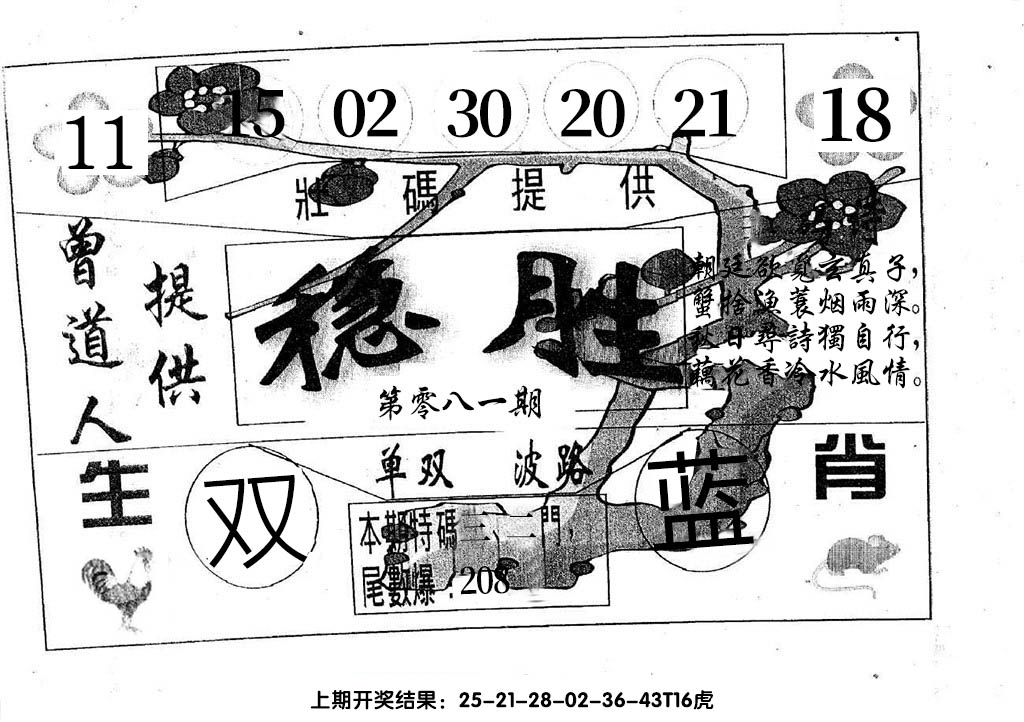 11 15 02 30 20 21 18
壯碼提供
曾道人
提供
稳胜
第零八一期
朝廷欲覓玄真子，
蟹恰漁蓑烟雨深。
秋日尋詩獨自行，
藕花香冷水風情。
单双 波路
生 双 蓝 肖
本期特碼三、二門，
尾數爆：208
上期开奖结果：25-21-28-02-36-43T16虎